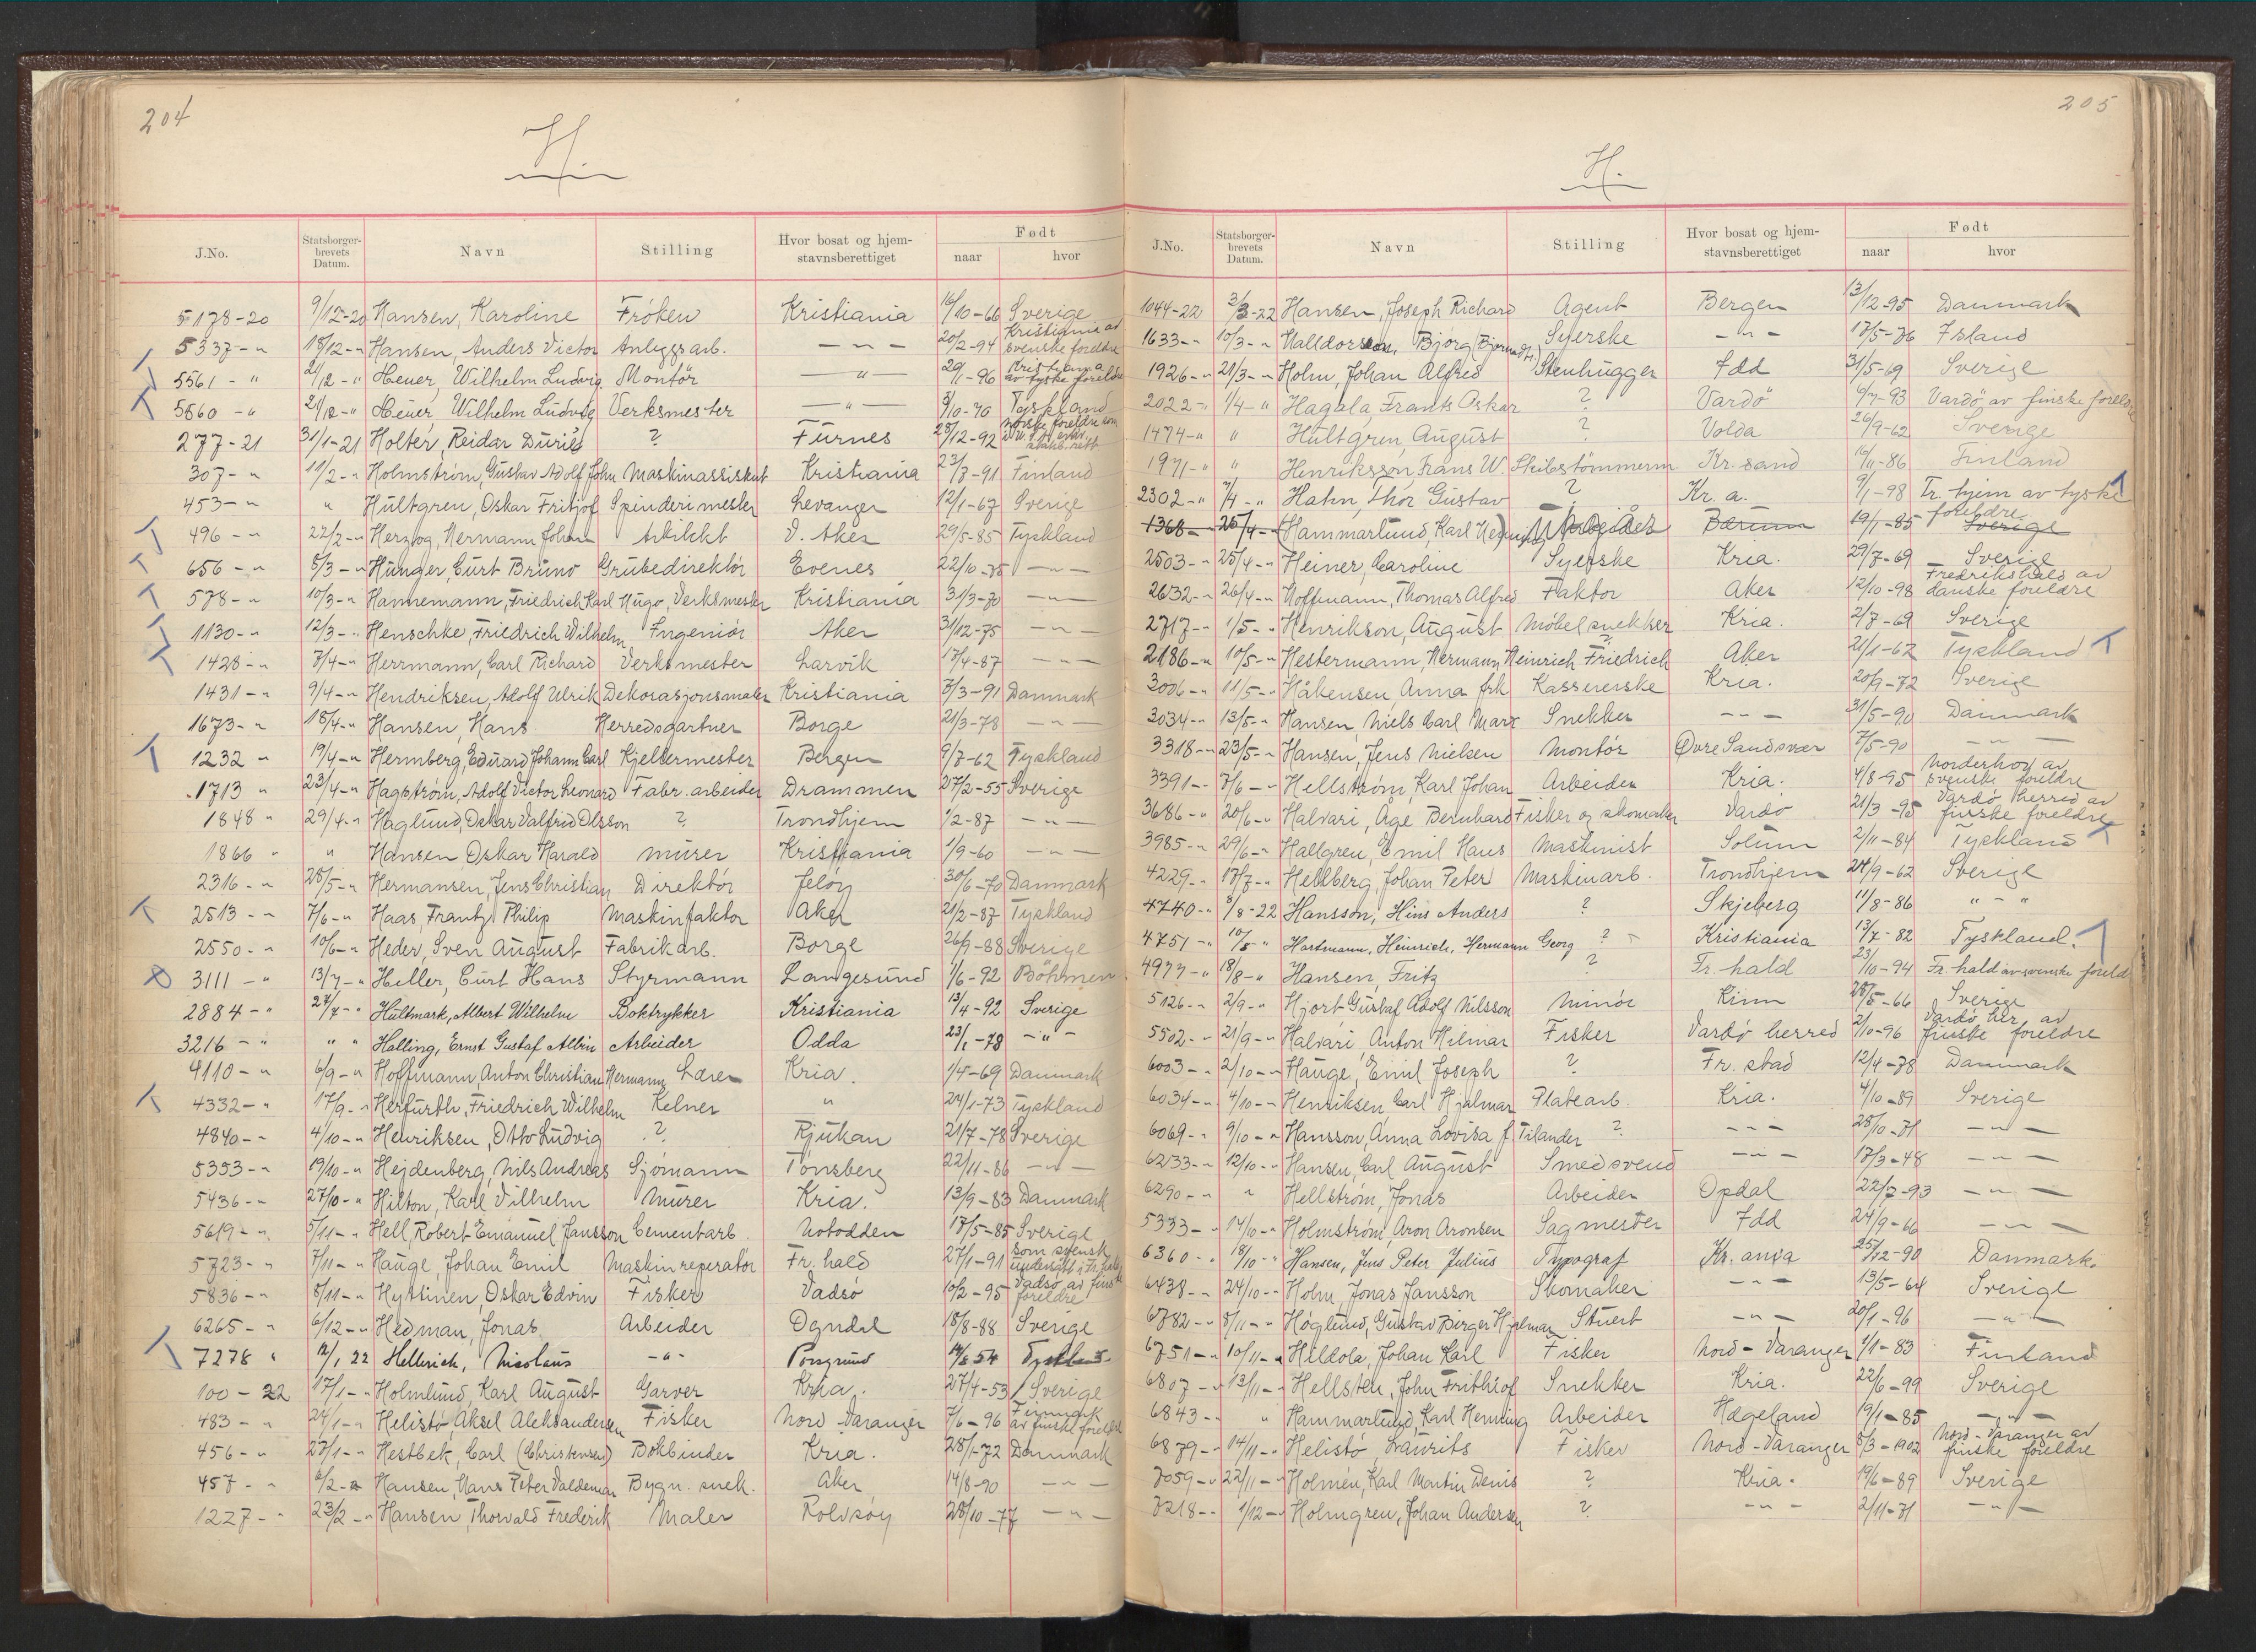 204
H.
J.No. Statsborger-brevets Datum. Navn Stilling Hvor bosat og hjem-stavnsberettiget Født naar hvor
5178-20 9/12-20 Hansen, Karoline Frøken Kristiania 16/10-66 Sverige
5337-" 18/12-" Hansen, Anders Victor Anleggsarb. -"- 20/2-94 Kristiania av svenske foreldre
5561-" 21/12-" Heuer, Wilhelm Ludvig Montör -"- 29/1-96 Kristiania av tyske foreldre
5560-" 21/12-" Heuer Wilhelm Ludvig Verksmester -"- 3/10-70 Tyskland
277-21 31/1-21 Holter, Reidar Durië ? Furnes 28/12-92 norske foreldre som
307-" 11/2-" Holmstrøm, Gustav Adolf John Maskinassistent Kristiania 23/7-91 Finland
453-" " Hultgren, Oskar Fritjof Spinderimester Levanger 12/1-67 Sverige
496-" 22/2-" Herzog, Hermann Johan Arkitekt V. Aker 29/5-85 Tyskland
656-" 5/3-" Hunger, Curt Bruno Grubedirektör Evenes 22/10-75 -"-
578-" 10/3-" Hannemann, Friedrich Karl Hugo, Verksmester Kristiania 31/3-70 -"-
1130-" 12/3-" Henschke, Friedrich Wilhelm Ingeniör Aker 31/12-75 -"-
1428-" 7/4-" Herrmann, Carl Richard Verksmester Larvik 17/4-87 -"-
1431-" 9/4-" Hendriksen, Adolf Ulrik Dekorasjonsmaler Kristiania 7/3-91 Danmark
1673-" 18/4-" Hansen, Hans Herredsgartner Borge 21/3-78 -"-
1232 " 19/4-" Hermberg, Eduard Johann Carl Kjeldermester Bergen 9/7-62 Tyskland
1713 " 23/4-" Hagstrøm, Adolf Victor Leonard Fabr. arbeider Drammen 27/2-55 Sverige
1848 " 29/4-" Haglund, Oskar Valfrid Olsson ? Trondhjem 1/2-87 -"-
1866 " " Hansen Oskar Harald Murer Kristiania 1/9-60 -"-
2316-" 28/5-" Hermansen, Jens Christian Direktör Jeløy 30/6-70 Danmark
2513-" 7/6-" Haas, Frantz Philip Maskinfaktor Aker 21/2-87 Tyskland
2550-" 10/6-" Heder, Sven August Fabrikarb. Borge 26/9-88 Sverige
3111-" 13/7-" Heller, Curt Hans Styrmann Langesund 1/6-92 Böhmen
2884-" 27/7-" Hultmark, Albert Wilhelm Boktrykker Kristiania 13/4-92 Sverige
3216-" " " Halling, Ernst Gustaf Albin Arbeider Odda 23/1-78 -"-
4110-" 6/9-" Hoffmann, Anton Christian Hermann Lærer Kria. 1/4-69 Danmark
4332-" 17/9-" Herfurth, Friedrich Wilhelm Kelner " 24/1-73 Tyskland
4840-" 4/10-" Henriksen, Otto Ludvig ? Rjukan 21/7-78 Sverige
5353-" 19/10-" Hejdenberg, Nils Andreas Sjømann Tønsberg 22/11-86 -"-
5436-" 27/10-" Hilton, Karl Vilhelm Murer Kria. 13/9-83 Danmark
5619-" 5/11-" Hell, Robert Emanuel Jansson Cementarb. Notodden 17/5-85 Sverige
5723-" 7/11-" Hauge, Johan Emil Maskinreperatör Fr. hald 27/1-91 som svensk undersått i Fr. hald
5836-" 8/11-" Hyttinen, Oskar Edvin Fisker Vadsø 10/2-95 Vadsø av finske foreldre
6265-" 6/12-" Hedman, Jonas Arbeider Ogndal 18/8-88 Sverige
7278 " 12/1 22 Hellerich, Nicolaus -"- Porsgrund 14/8 54 Tyskland
100-22 17/1-" Holmlund, Karl August Garver Kria. 27/4-53 Sverige
483-" 24/1-" Helistø Aksel Aleksandersen Fisker Nord-Varanger 7/6-96 Finmark av finske foreldre
456-" 27/1-" Hestbek, Carl (Christensen) Bokbinder Kria. 28/1-72 Danmark
457-" 6/2-" Hansen, Hans Peter Valdemar Bygn. snek. Aker 14/8-90 -"-
1227-" 23/2-" Hansen, Thorvald Frederik Maler Rolvsøy 28/10-77 -"-
205
H.
J.No. Statsborger-brevets Datum. Navn Stilling Hvor bosat og hjem-stavnsberettiget Født naar hvor
1044-22 3/3-22 Hansen, Joseph Richard Agent Bergen 13/12-95 Danmark
1633-" 10/3-" Halldorsson, Bjørg Syerske -"- 17/5-76 Island
1926-" 21/3-" Holm, Johan Alfred Stenhugger Idd 31/5-69 Sverige
2022-" 1/4-" Hagala Frants Oskar ? Vardö 6/7-93 Vardö av finske foreldre
1474-" " Hultgren, August ? Volda 26/9-62 Sverige
1971-" " Henriksson, Frans W. Skibstömmerm Kr. sand 16/11-86 Finland
2302-" 7/4-" Hahn, Thor Gustav ? Kr. a. 9/1-98 Tr. hjem av tyske foreldre
1368- 25/4- Hammarlund, Karl Henning Arbeider Bærum 19/1-85 Sverige
2503-" 25/4-" Heiner, Caroline Syerske Kria. 29/7-69 Sverige
2632-" 26/4-" Hoffmann, Thomas Alfred Faktor Aker 12/10-98 Fredrikshald av danske foreldre
2717-" 1/5-" Henrikson, August Møbelsnekker Kria. 2/7-69 Sverige
2186-" 10/5-" Hestermann, Hermann Heinrich Friedrich ? Aker 21/1-62 Tyskland
3006-" 11/5-" Håkensen, Anna frk Kassererske Kria. 20/9-72 Sverige
3034-" 13/5-" Hansen, Niels Carl Marx Snekker -"- 31/5-90 Danmark
3318-" 23/5-" Hansen, Jens Nielsen Montör Øvre Sandsvær 7/5-90 -"-
3391-" 7/6-" Hellstrøm, Karl Johan Arbeider Kria. 4/8-95 Norderhov av svenske foreldre
3686-" 20/6-" Halvari, Åge Bernhard Fisker og skomaker Vardø 21/3-95 Vardø herred av finske foreldre
3985-" 29/6-" Hallgren, Emil Hans Maskinist Solum 2/11-84 Tyskland
4229-" 17/7-" Hellberg, Johan Peter Maskinarb. Trondhjem 24/9-62 Sverige
4740-" 8/8-22 Hansson, Hins Anders ? Skjeberg 11/8-86 "-"
4751-" 10/8-" Hartmann, Heinrich, Hermann Georg ? Kristiania 13/7-82 Tyskland.
4977-" 18/8-" Hansen, Fritz ? Fr. hald 23/10-94 Fr. hald av svenske foreld
5126-" 2/9-" Hjort Gustaf Adolf Nilsson Minör Kinn 28/5-66 Sverige
5502-" 21/9-" Halvari Anton Hilmar Fisker Vardø herred 2/10-96 Vardø her. av finske foreldre
6003-" 2/10-" Hauge, Emil Joseph ? Fr. stad 12/4-78 Danmark
6034-" 4/10-" Henriksen, Carl Hjalmar Platearb. Kria. 4/10-89 Sverige
6069-" 9/10-" Hansson, Anna Lovisa f. Tilander ? -"- 28/10-71 -"-
6233-" 12/10-" Hansen, Carl August Smedsvend -"- 17/3-48 -"-
6290-" " Hellstrøm, Jonas Arbeider Opdal 22/7-93 -"-
5333-" 14/10-" Holmstrøm, Aron Aronsen Sagmester Idd 24/9-66 -"-
6360-" 18/10-" Hansen, Jens Peter Julius Typograf Kr. ania 25/12-90 Danmark.
6438-" 24/10-" Holm, Jonas Jansson Skomaker -"- 13/5-64 Sverige
6782-" 8/11-" Høglund, Gustav Birger Hjalmar Stuert -"- 20/1-96 -"-
6751-" 10/11-" Hildola, Johan Karl Fisker Nord-Varanger 1/1-83 Finland
6807-" 13/11-" Hellsten, John Frithiof Snekker Kria. 22/6-99 Sverige
6843-" " Hammarlund, Karl Henning Arbeider Hægeland 19/1-85 -"-
6879-" 14/11-" Helistø, Laurits Fisker Nord-Varanger 8/3-1902 Nord-Varanger av finske foreldre
7059-" 22/11-" Holmén, Karl Martin Denis ? Kria. 19/6-89 Sverige
7218-" 1/12-" Holmgren, Johan Andersen ? -"- 2/11-71 -"-